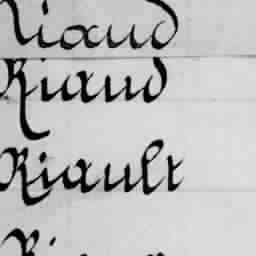 Riaud
Riaud
Riault